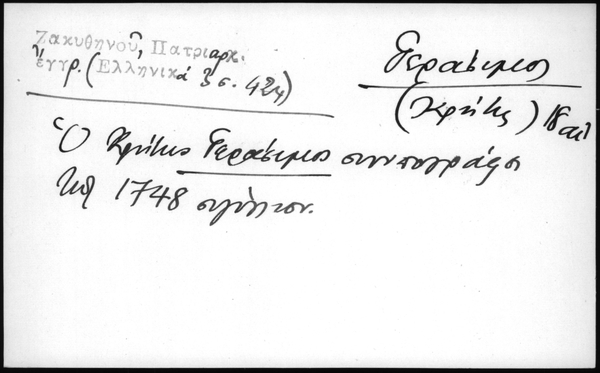 Ζακυθηνοῦ, Πατριαρχ.
ἔγγρ. (Ἑλληνικά 3 σ. 424)
Γεράσιμος
(Κρήτης) 18 αἰ
Ὁ Κρήτης Γεράσιμος συνυπογράφει
1748